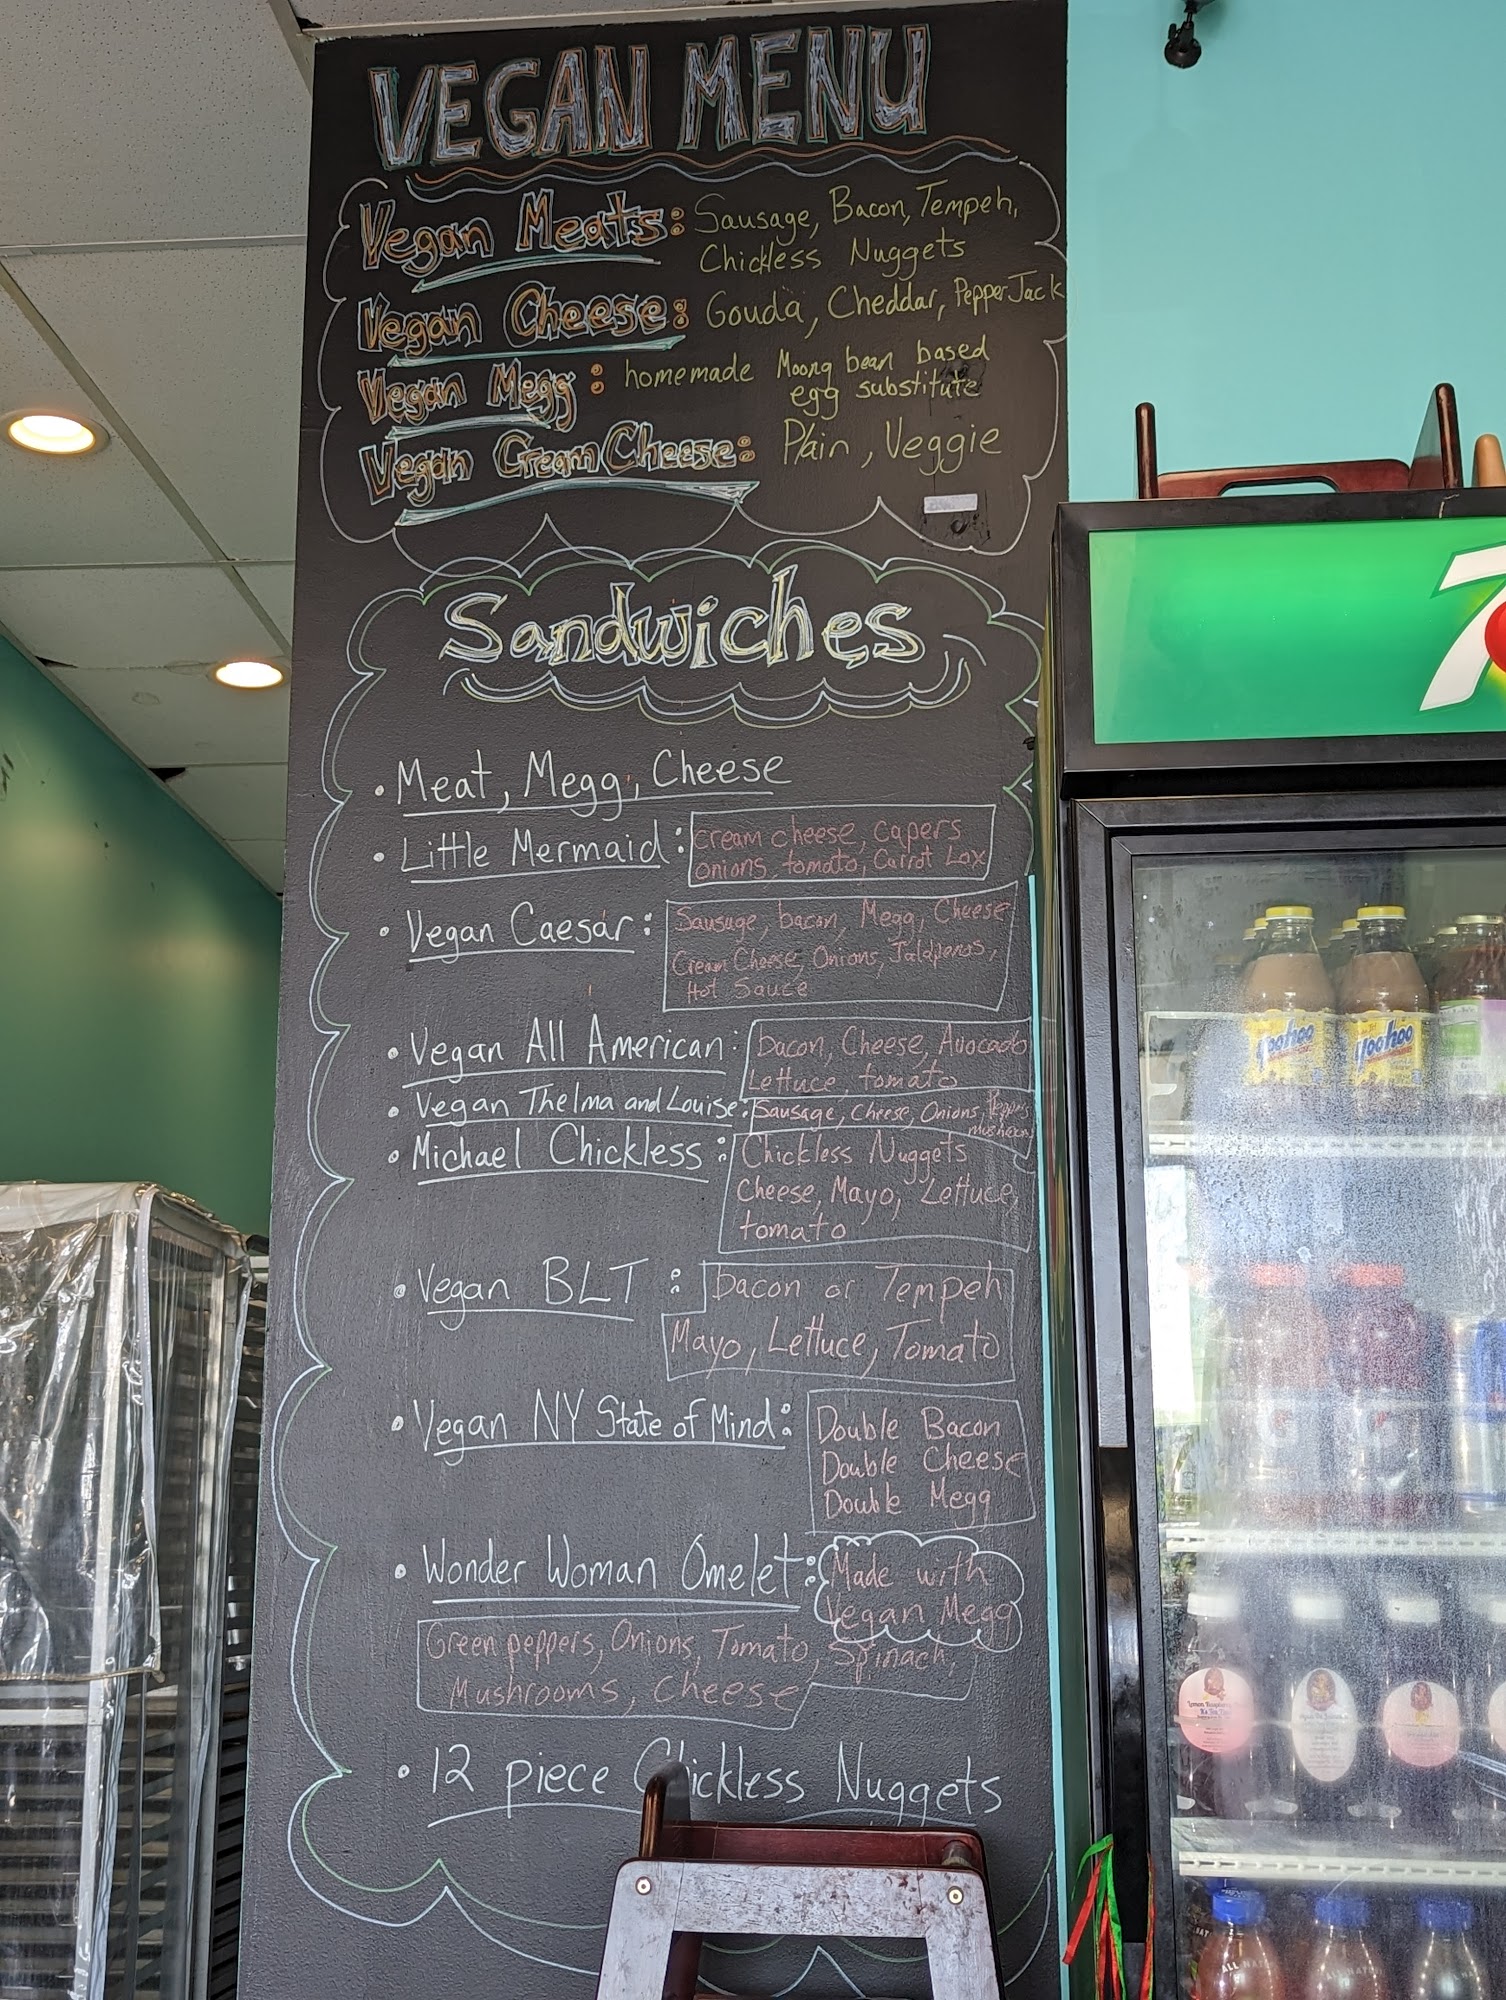 VEGAN MENU
Vegan Meats: Sausage, Bacon, Tempeh,
Chickless Nuggets
Vegan Cheese: Gouda, Cheddar, Pepper Jack
Vegan Megg: homemade Moong bean based
egg substitute
Vegan Cream Cheese: Plain, Veggie
Sandwiches
• Meat, Megg, Cheese
• Little Mermaid: Cream cheese, Capers
onions, tomato, Carrot Lox
• Vegan Caesar: Sausage, bacon, Megg, Cheese
Cream Cheese, Onions, Jalapenos,
Hot Sauce
• Vegan All American: bacon, Cheese, Avocado
Lettuce, tomato
• Vegan Thelma and Louise: Sausage, Cheese, Onions, Peppers
• Michael Chickless: Chickless Nuggets
Cheese, Mayo, Lettuce,
tomato
• Vegan BLT: Bacon or Tempeh
Mayo, Lettuce, Tomato
• Vegan NY State of Mind: Double Bacon
Double Cheese
Double Megg
• Wonder Woman Omelet: Made with
Vegan Megg
Green peppers, Onions, Tomato, Spinach,
Mushrooms, Cheese
• 12 piece Chickless Nuggets
7
Yoohoo
Yoohoo
G
G